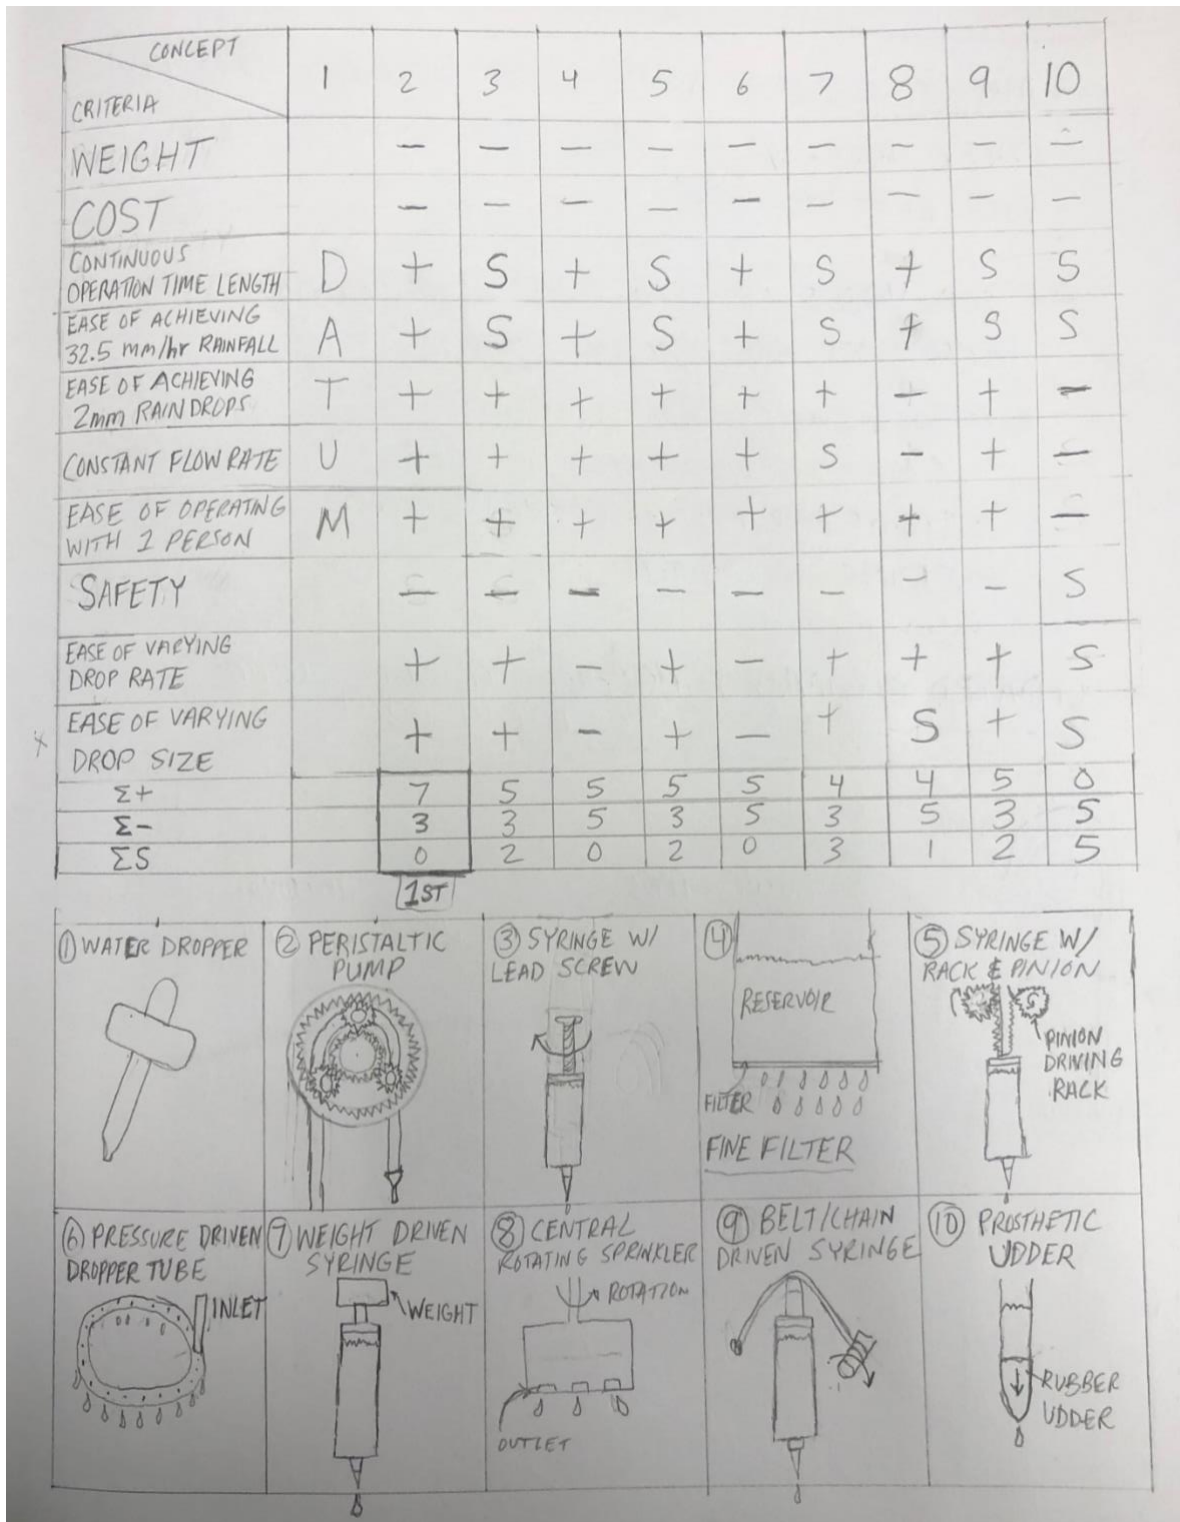 CONCEPT
CRITERIA
1 2 3 4 5 6 7 8 9 10
WEIGHT − − − − − − − − −
COST − − − − − − − − −
CONTINUOUS
OPERATION TIME LENGTH D + S + S + S + S S
EASE OF ACHIEVING
32.5 mm/hr RAINFALL A + S + S + S + S S
EASE OF ACHIEVING
2mm RAINDROPS T + + + + + + − + −
CONSTANT FLOW RATE U + + + + + S − + −
EASE OF OPERATING
WITH 1 PERSON M + + + + + + + + −
SAFETY − − − − − − − − S
EASE OF VARYING
DROP RATE + + − + − + + + S
x EASE OF VARYING
DROP SIZE + + − + − + S + S
Σ+ 7 5 5 5 5 4 4 5 0
Σ− 3 3 5 3 5 3 5 3 5
ΣS 0 2 0 2 0 3 1 2 5
1ST
① WATER DROPPER
② PERISTALTIC
PUMP
③ SYRINGE W/
LEAD SCREW
④
RESERVOIR
FILTER
FINE FILTER
⑤ SYRINGE W/
RACK & PINION
PINION
DRIVING
RACK
⑥ PRESSURE DRIVEN
DROPPER TUBE
INLET
⑦ WEIGHT DRIVEN
SYRINGE
WEIGHT
⑧ CENTRAL
ROTATING SPRINKLER
ROTATION
OUTLET
⑨ BELT/CHAIN
DRIVEN SYRINGE
⑩ PROSTHETIC
UDDER
RUBBER
UDDER